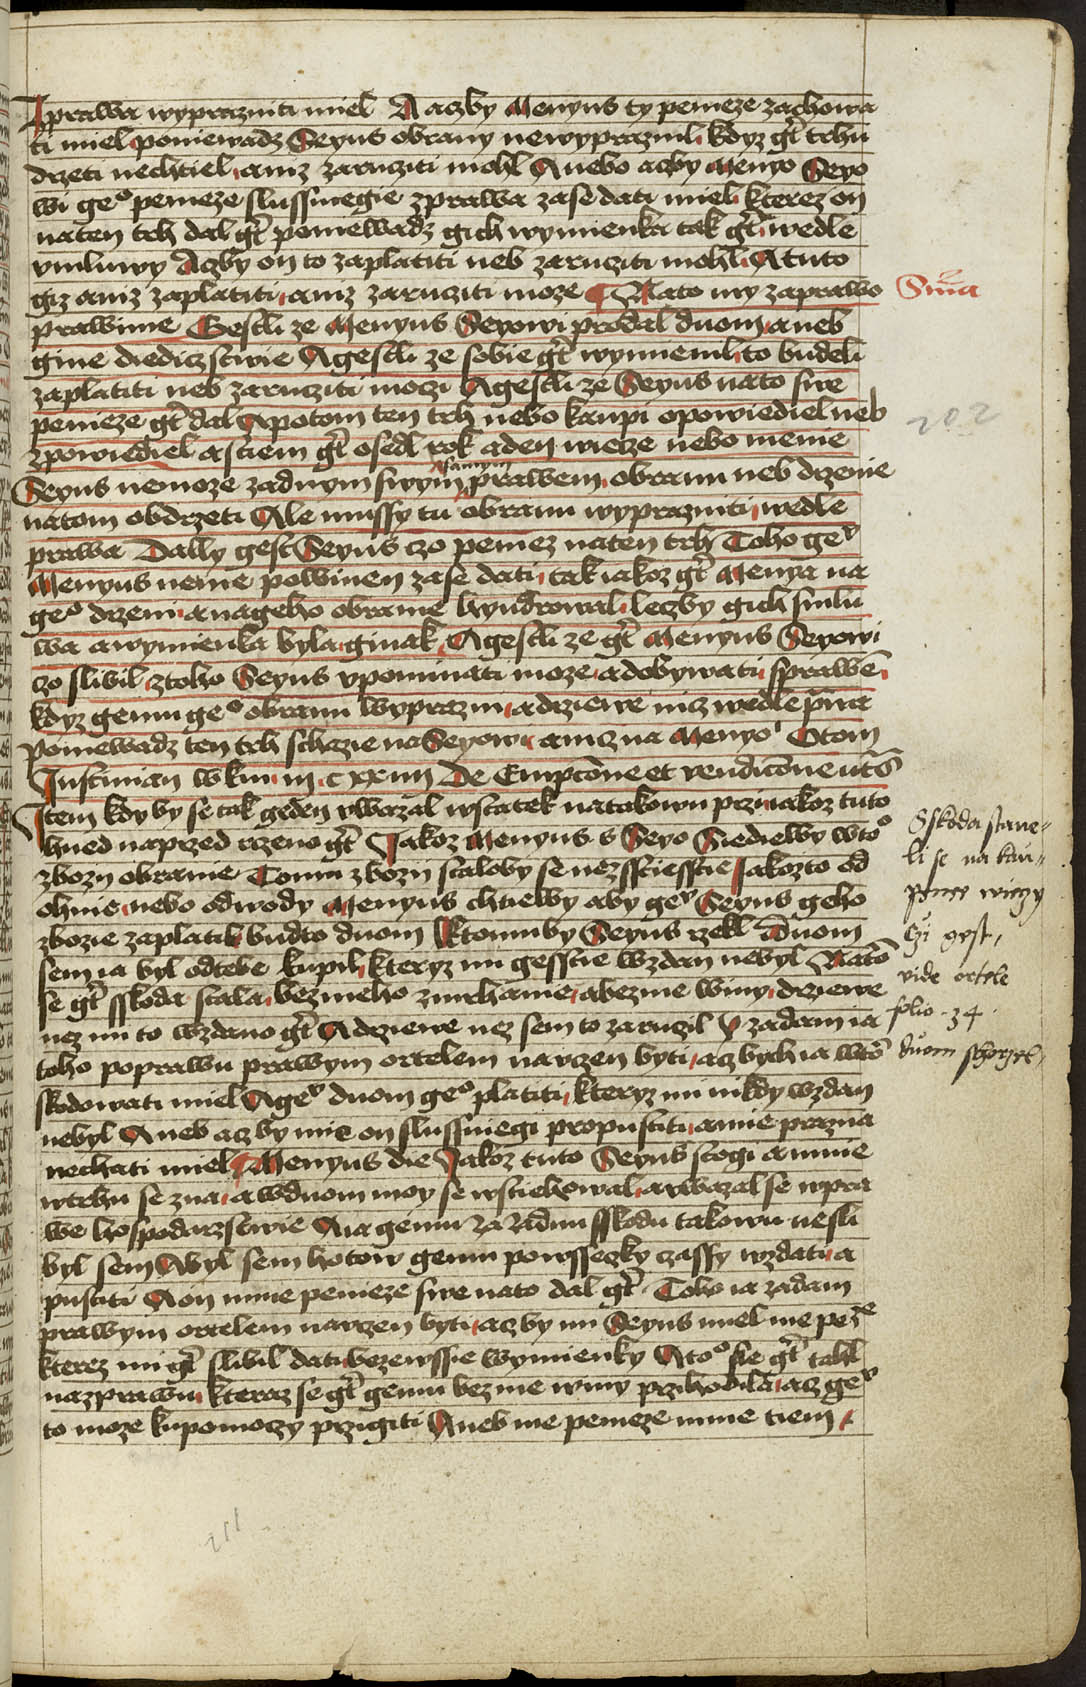 Zprawa wyprazniti miel A aczby Menyus ty penieze zachowa
ti miel poniewadz Seyus obrany newypraznil kdyz gt trhu
drzeti nechtiel aniz zarucziti mohl Anebo aczby Menyo Seyo
wi geo penieze slussniegie zprawa zase dati miel kterez on
naten trh dal gt poniewadz gich wymienka tak gt wedle
vmluwy Aczby on to zaplatiti neb zarucziti mohl A tuto
giz aniz zaplatiti aniz zarucziti moze Nato my zaprawo
prawime Gestli ze Menyus Seyowi prodal duom aneb
gine diediczstwie Agestli ze sobie gt wymienil to budeli
zaplatiti neb zarucziti moczi Agestli ze Seyus nato swe
penieze gt dal Apotom ten trh nebo kaupi opowiediel neb
zpowiediel a stiem gt osedl rok aden wiecze nebo menie
Seyus nemoze zadnym swym prawem obranu neb drzenie
natom obdrzeti Ale mussy tu obranu wyprazniti wedle
prawa Dally gest Seyus czo peniez naten trh Toho ge
Menyus nenie powinen zase dati takiakoz gt Menya na
geo drzeni anageho obranie hyndrowal leczby gich smlu
wa awymienka byla ginak Agestli ze gt Menyus Seyowi
czo slibil ztoho Seyus vpominati moze adobywati sprawe
kdyz genu geo obranu wyprazni adrziewe nicz wedle pwa
Poniewadz ten trh schazie na Seyowi anicz na Menyo Otom
Justinian wkni iii c xxiiii De Empcone et vendicone etc
Item kdyby se tak geden vwazal wstatek natakowu przi iakoz tuto
hned naprzed rzeno gt Jakoz Menyus s Seyo Siedielby wto
zbozy obranie Tomu zbozy staloby se nezsstiesstie Jakozto od
ohnie nebo odwody Menyus chtielby aby ge Seyus geho
zbozie zaplatil budto duom Ktomuby Seyus rzekl Duom
sem ia byl odtebe kupil kteryz mi gesstie wzdan nebyl Nato
se gt sskoda stala bezmeho zmrhanie abezme winy drziewe
nez mi to wzdano gt Adrziewe nez sem to zaruczil Y zadam ia
toho poprawu prawym ortelem narczen byti aczbych ia wto
skodowati miel Age duom geo platiti kteryz mi nikdy wzdan
nebyl Aneb aczby mie on slussniegi propustiti a mie prazna
nechati miel Menyus die Jakoz tuto Seyus stogi a mnie
wtrhu se zna awduom moy se wstiehowal awwazal se wpra
we hospodarzstwie A ia genu zazadnu sskodu takowu nesli
byl sem Abyl sem hotow genu powsseczky czassy wzdati a
pustiti A on mnie penieze swe nato dal gt Toho ia zadam
prawym ortelem narczen byti aczby mi Seyus miel me peze
kterez mi gt slibil dati bezewssie wymienky Atoo sie gt tahl
nazprawu kteraz se gt genu bezme winy przihodila acz ge
to moze kupomoczy przigiti Aneb me penieze mnie tiem
202
Sskoda stane-
li se na kau-
penee wieczy
czi gest,
vide ortele
folio . 34 .
duom schorzel
111